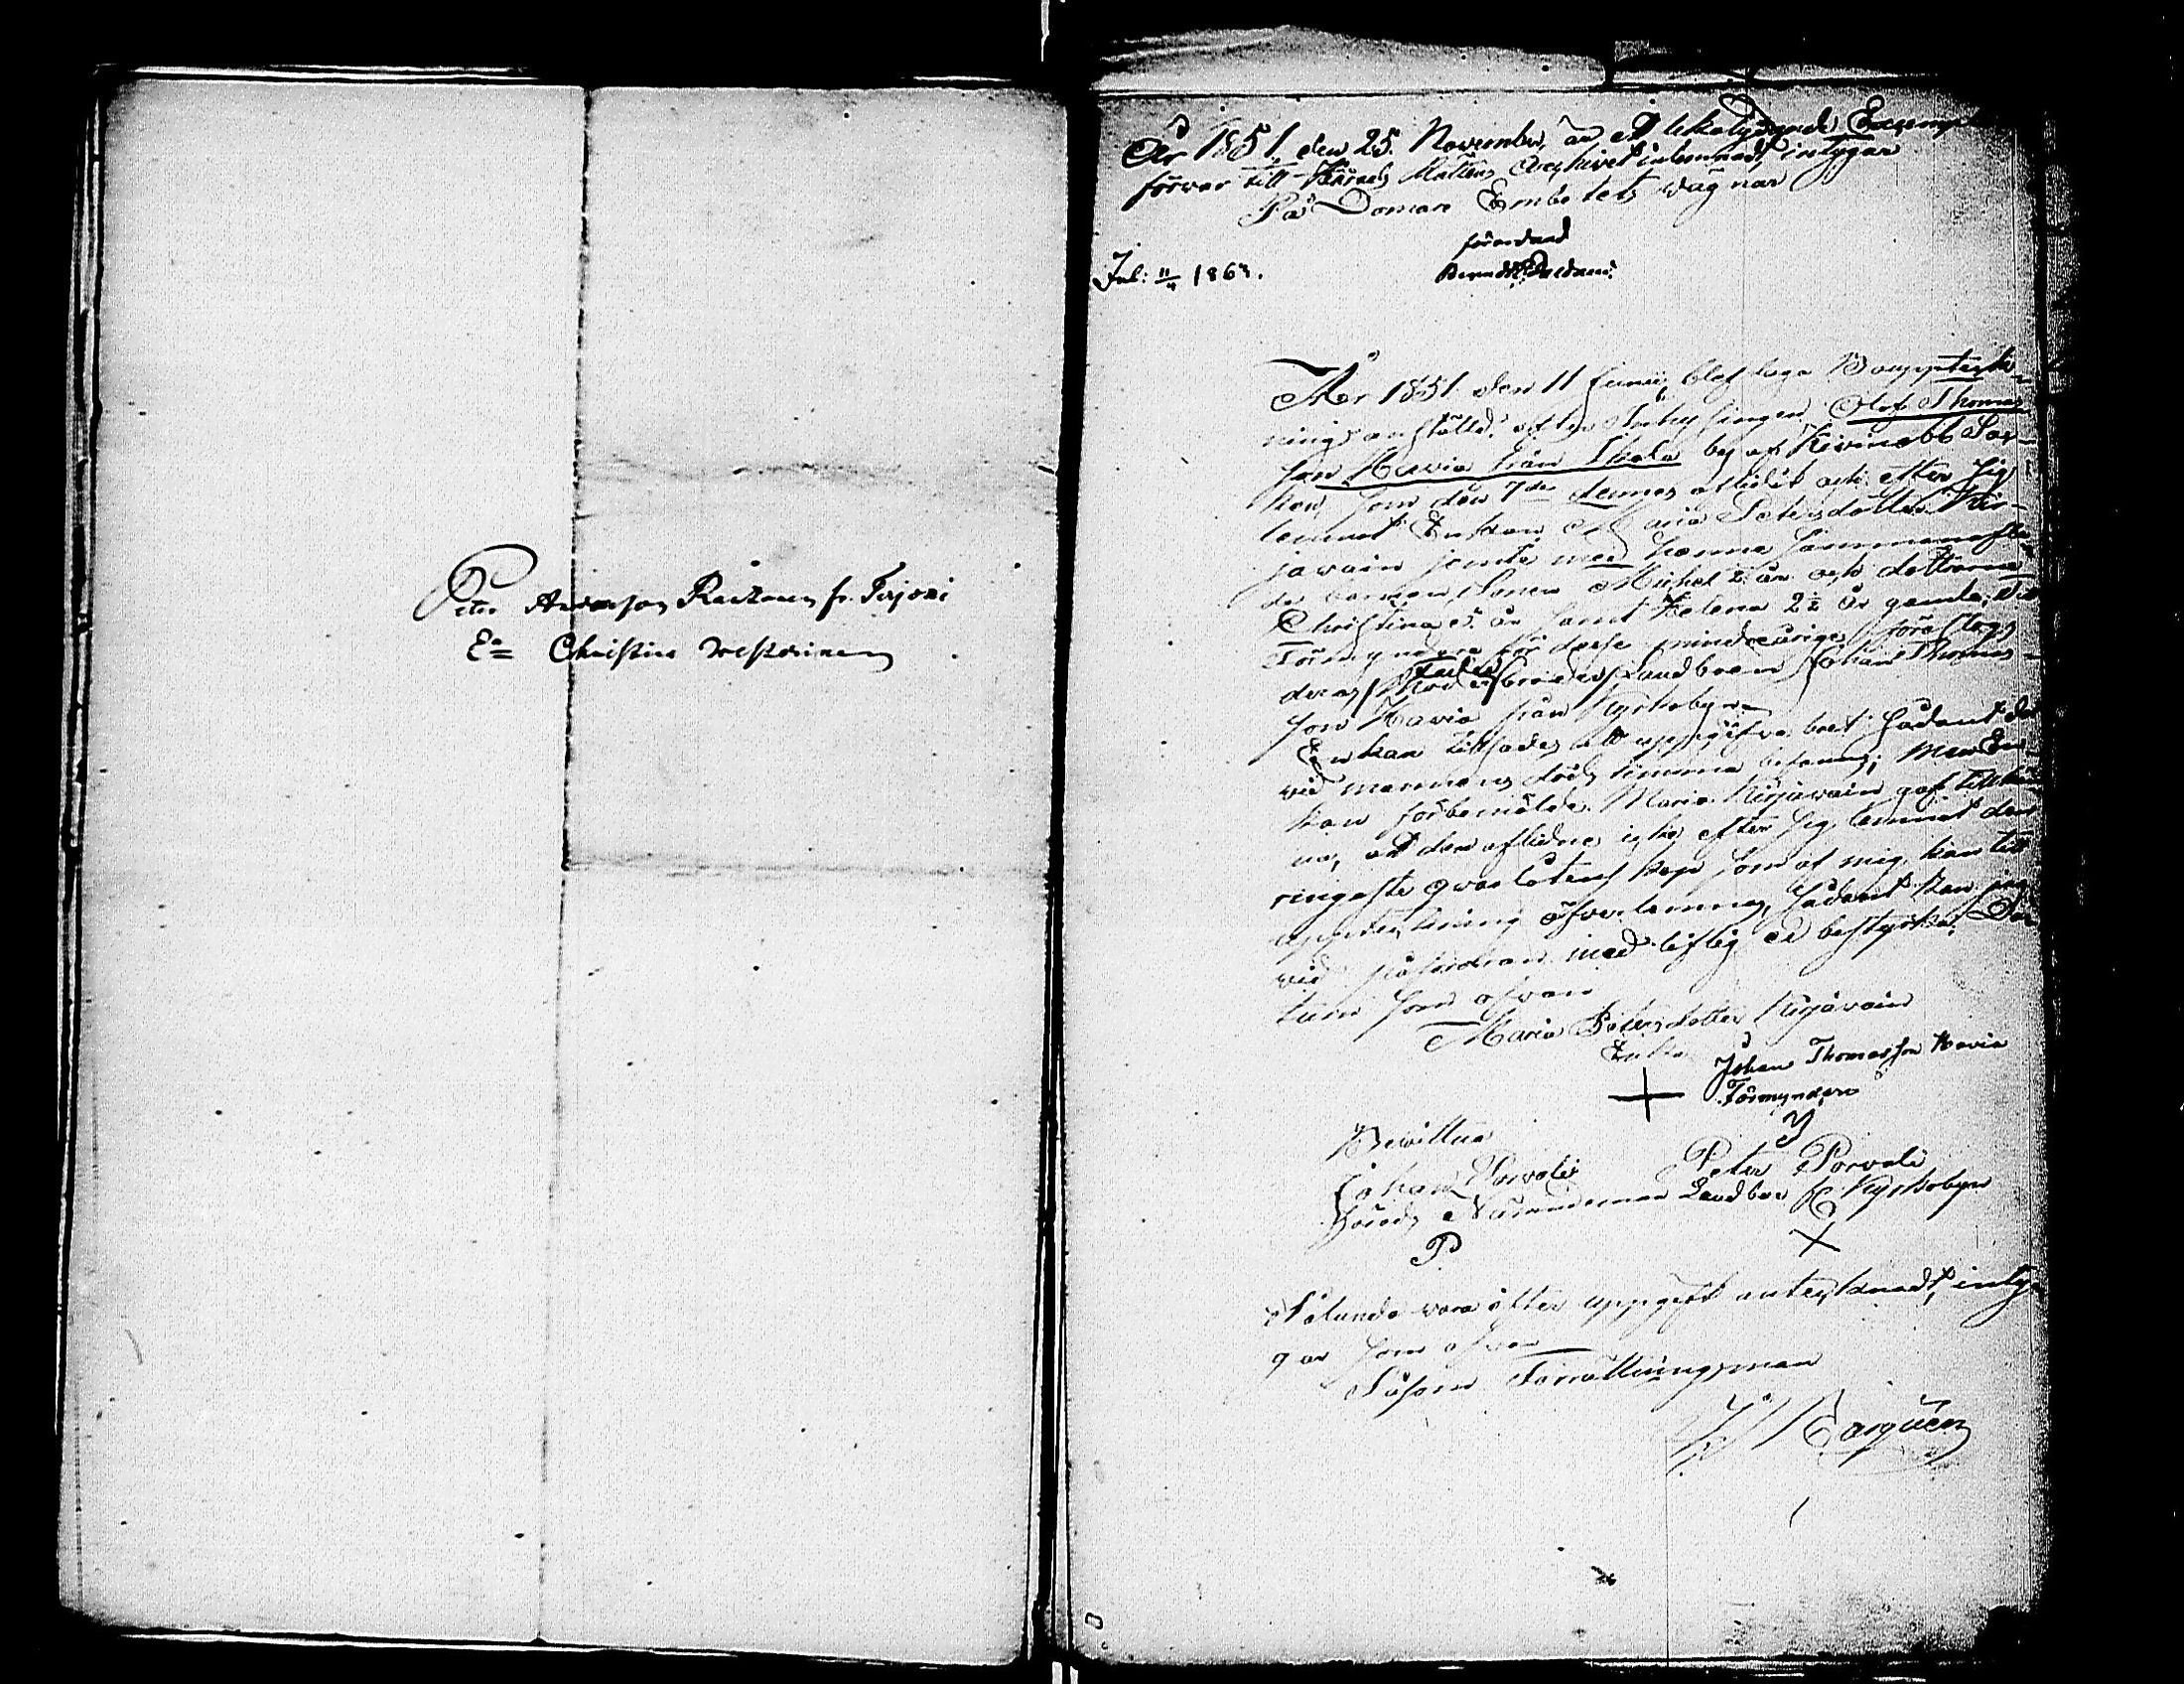 Peter Andersson Raikonen fr. Torjoki
E:a Christina Westerinen
År 1851, den 25. November, är ett likalydande Exempl
förvar till Härads Rättens Archivet inlemnadt, intygar
På Domare Embetets vägnar
förordnad
Jul: 11/4 1864.
År 1851 den 11 Junii, blef laga Bouppteck-
ning anstäld efter Inhyseingen Olof Thomas
son Havia från Ikola by af Kivinebb Sok-
ken, som den 7de dennes aflidit och efter sig
lemnat Enkan Maria Petersdotter Kir-
javain jemte med henne sammanafla-
de barnen, Sonen Michel 8 år och döttrarne
Christina 5 år samt Helena 2½ år gamla. Till
Förmyndare för desse minderårige föreslogs
deras Farbroder Landboen Johan Thomas-
son Havia från Kyrkobyn
Enkan tillsades att uppgifva boet sådant det
vid mannens döds timma befanns; men En-
kan förbemälde Maria Kirjavain gaf tillkän
na, att den aflidne icke efter sig lemnat den
ringaste qvarlåtenskap som af mig kan till
uppteckning öfverlemnas, sådant kan jag
vid påfordran med liflig ed bestyrka. Da-
tum som ofvan
Maria Petersdotter Kirjavain
Enka
Johan Thomasson Havia
Förmyndare
Bevittna
Johan Porvali Peter Porvali
Härads Nämndeman Landboe fr. Kyrkobyn
P
Sålunda vara efter uppgift antecknadt, inty-
gar som ofvan
Såsom Förrättningsman